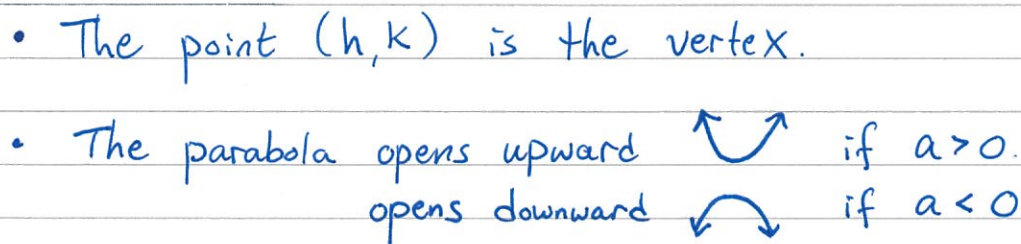 • The point (h,k) is the vertex.
• The parabola opens upward if a>0.
opens downward if a<0